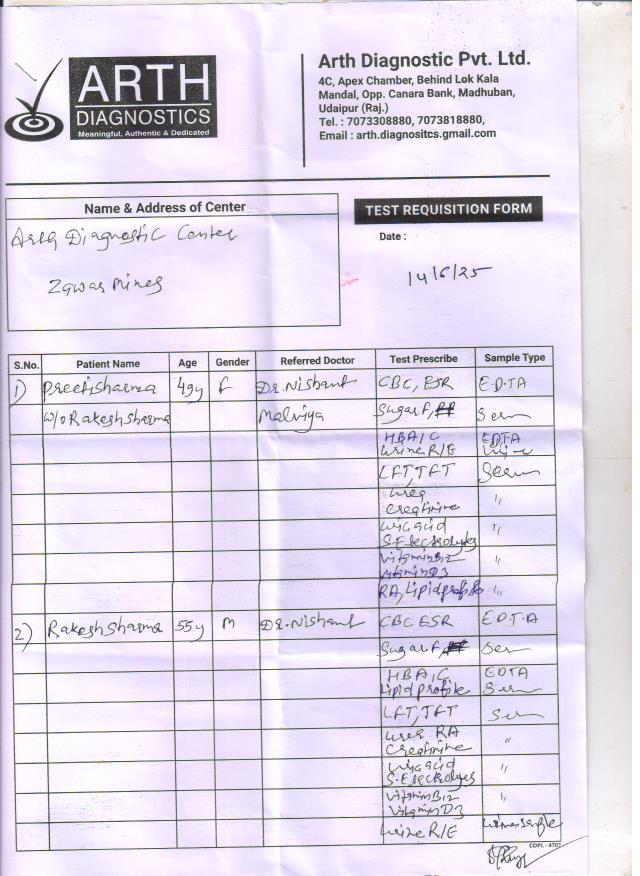 ARTH
DIAGNOSTICS
Meaningful, Authentic & Dedicated
Arth Diagnostic Pvt. Ltd.
4C, Apex Chamber, Behind Lok Kala
Mandal, Opp. Canara Bank, Madhuban,
Udaipur (Raj.)
Tel. : 7073308880, 7073818880,
Email : arth.diagnositcs.gmail.com
Name & Address of Center
TEST REQUISITION FORM
Arth Diagnostic Center
Zawar Mines
Date :
14/6/25
S.No. Patient Name Age Gender Referred Doctor Test Prescribe Sample Type
1) Preeti Sharma 49y F Dr. Nishant CBC, ESR E.D.TA
W/o Rakesh Sharma Malviya Sugar F, Serum
HBA1C EDTA
Urine R/E Urine
LFT, TFT Serum
Urea
Creatinine "
Uric acid
S. Electrolytes "
Vitamin B12
Vitamin D3 "
RA, Lipid profile "
2) Rakesh Sharma 55y M Dr. Nishant CBC ESR E.D.T.A
Sugar F, Serum
HBA1C EDTA
Lipid profile Serum
LFT, TFT Serum
Urea RA
Creatinine "
Uric acid
S. Electrolytes "
Vitamin B12
Vitamin D3 "
Urine R/E Urine sample
COPL - 4707